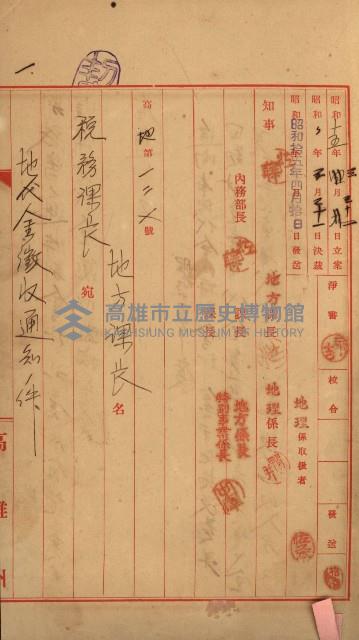 昭和十五年 月 日立案
昭和 年 月 日決裁
昭和拾五年四月拾日發送
淨書
校合
發送
地理係取扱者
知事
地方課長
地理係長
內務部長
課長
係長
地方係長
特別事業係長
高地第一二八號
地方課長名
税務課長宛
一、地代金徵收通知ノ件
高雄州
高雄市立歷史博物館
KAOHSIUNG MUSEUM OF HISTORY